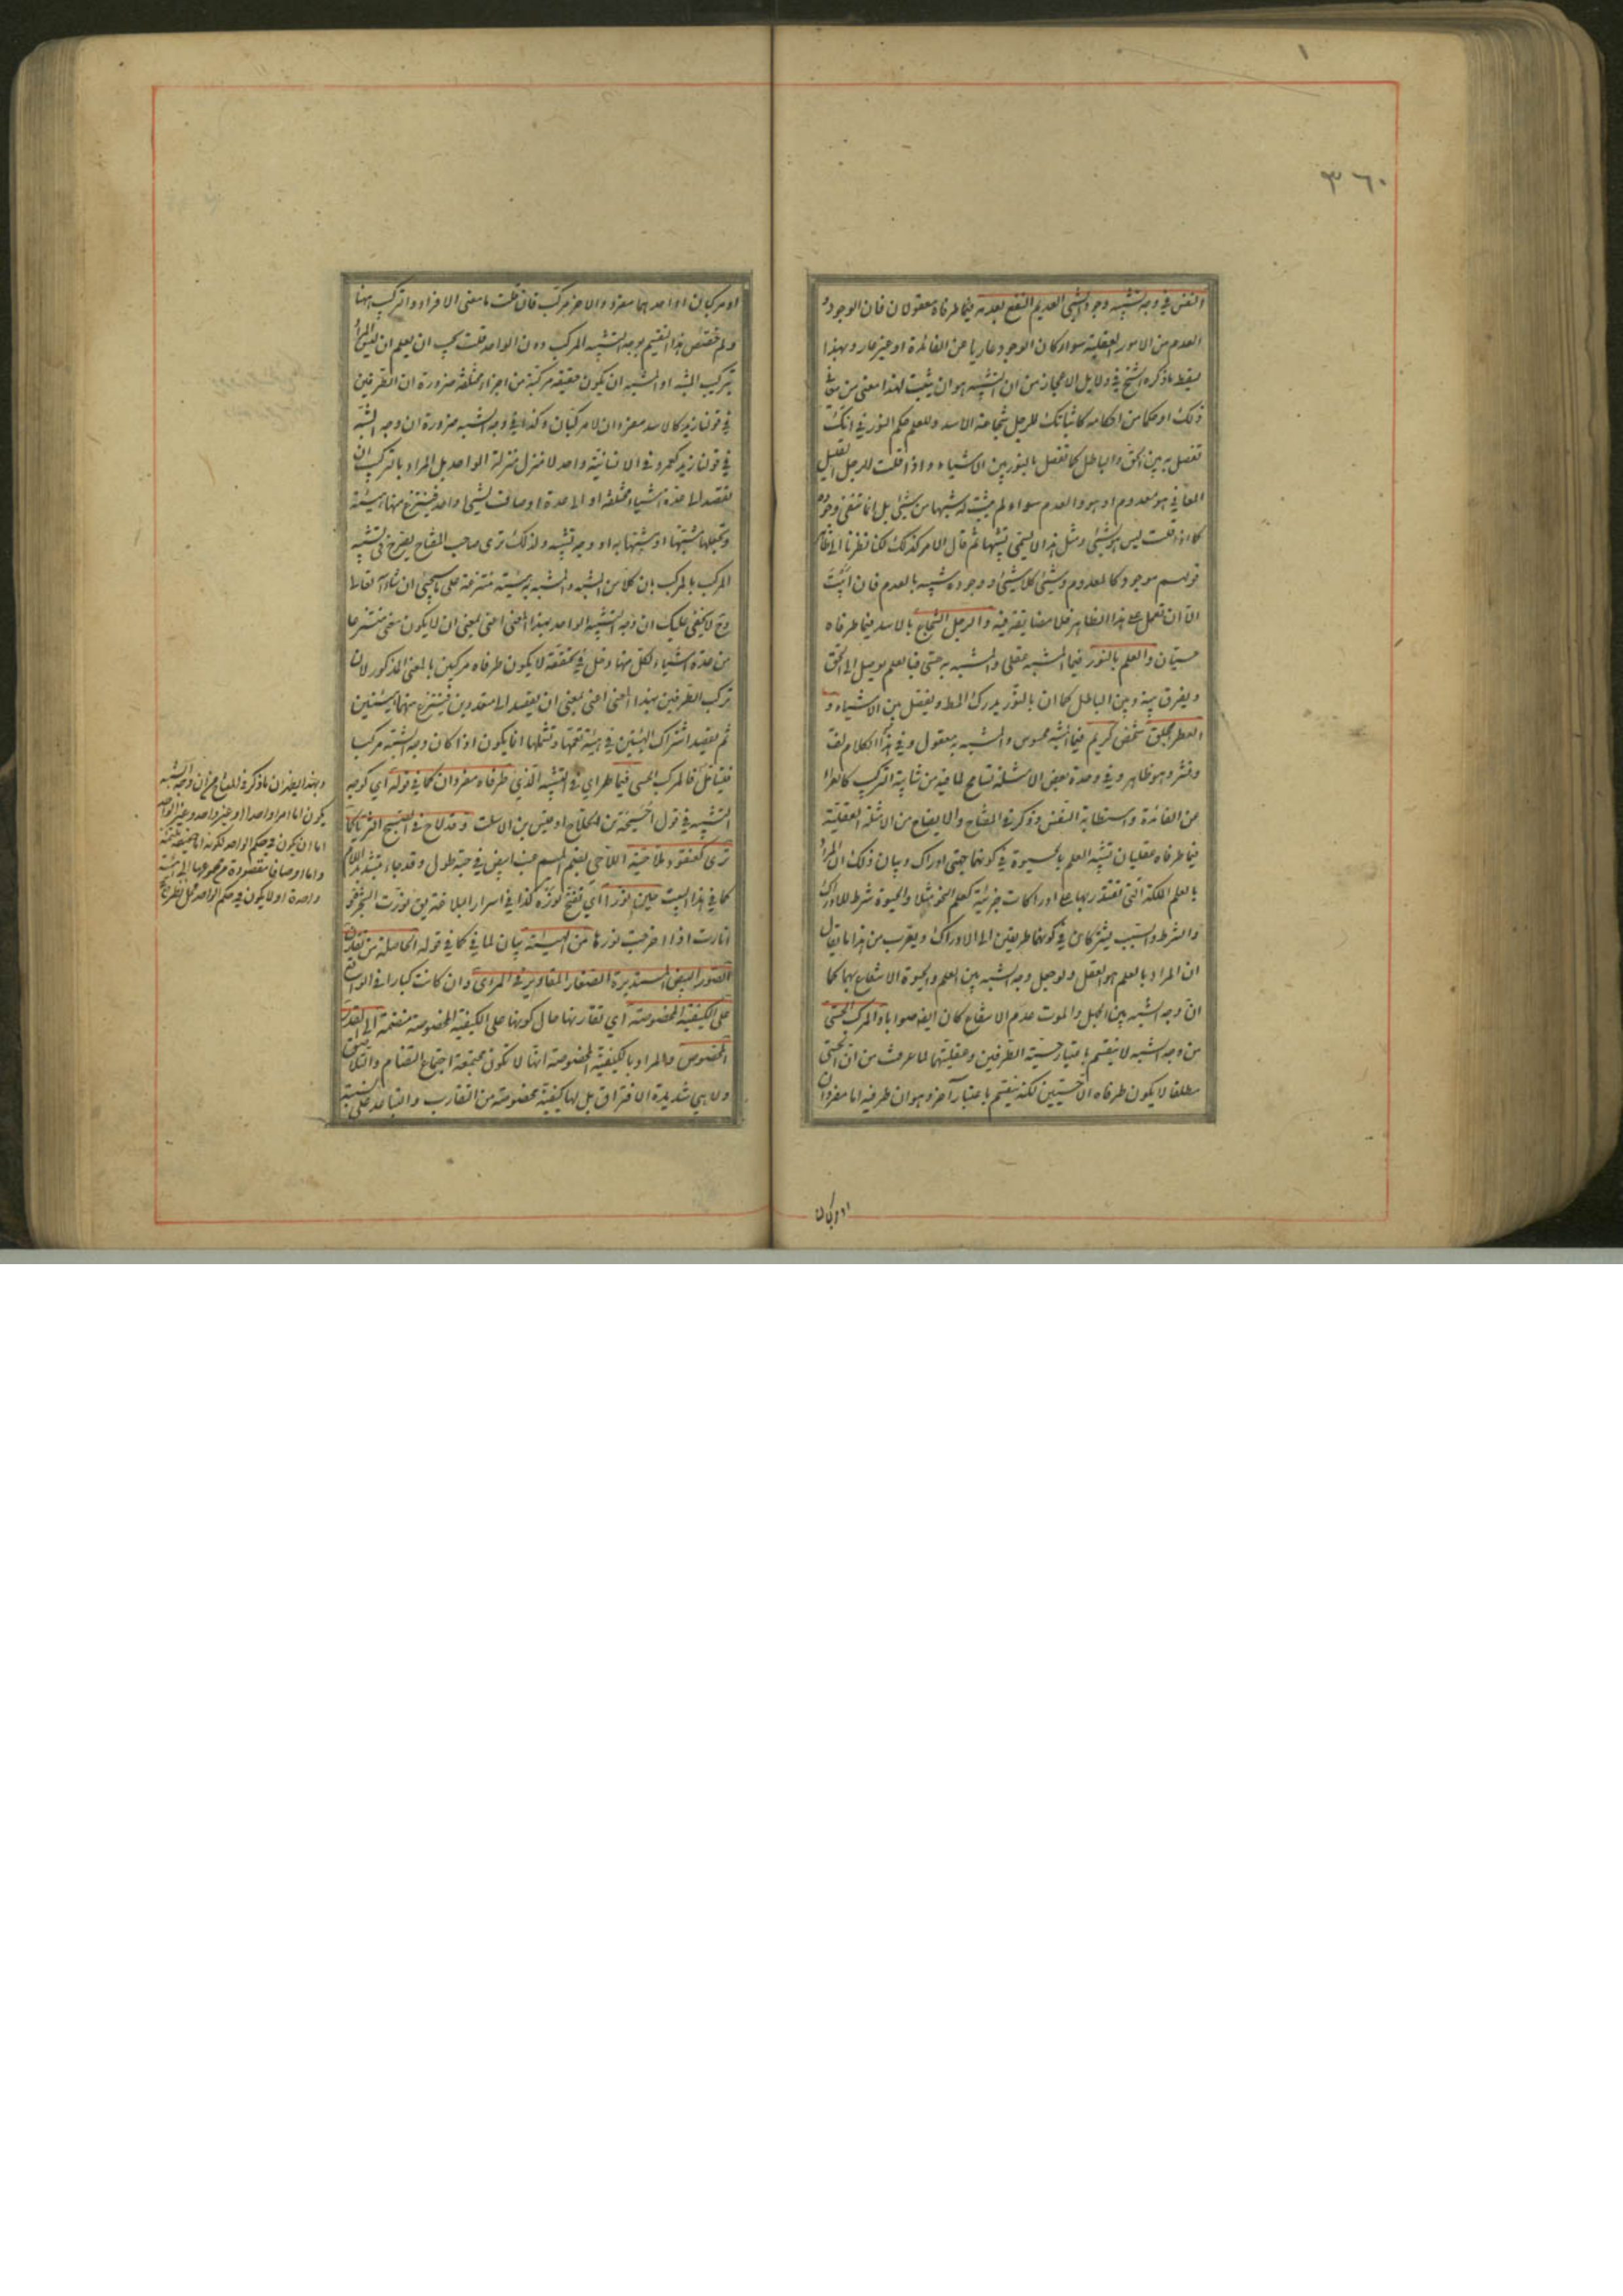 ٣٦٠
والنفس في وجه تشبيه وجود الشيء العديم النفع بعدمه فيما طرفاه معقولان فان الوجود و
العدم من الامور العقلية سواء كان الوجود عاريا عن الفائدة او غير عار وبهذا
يسقط ما ذكره الشيخ في دلايل الاعجاز من ان التشبيه هو ان يثبت لهذا معنى من معاني
ذلك او حكما من احكامه كاثباتك للرجل شجاعة الاسد وللعلم حكم النور في انك
تفصل به بين الحق والباطل كما تفصل بالنور بين الاشياء واذا قلت للرجل القليل
المعاني هو معدوم او هو والعدم سواء لم تثبت له شبها من شيء بل انما تنفي وجوده
كما اذا قلت ليس هو بشيء ومثل هذا لا يسمى تشبيها ثم قال الامر كذلك لكنا نظرنا الى ظاهر
قولهم موجود كالمعدوم وشيء كلا شيء ووجوده شبيه بالعدم فان ابيت
الا ان تعمل على هذا الظاهر فلا مضايقة فيه والرجل الشجاع بالاسد فيما طرفاه
حسيان والعلم بالنور فيما المشبه عقلي والمشبه به حسي فبالعلم يوصل الى الحق
ويفرق بينه وبين الباطل كما ان بالنور يدرك المط ويفصل بين الاشياء و
العطر بخلق شخص كريم فيما المشبه محسوس والمشبه به معقول وفي هذا الكلام لف
ونشر وهو ظاهر وفي وحدة بعض الامثلة تسامح لما فيه من شايبة التركيب كالعراء
عن الفائدة واستطابة النفس وذكر في المفتاح والايضاح من الامثلة العقلية
فيما طرفاه عقليان تشبيه العلم بالحيوة في كونهما جهتي ادراك وبيان ذلك ان المراد
بالعلم الملكة التي نقتدر بها على ادراكات جزئية كعلم النحو مثلا والحيوة شرط للادراك
والشرط والسبب يشتركان في كونهما طريقين الى الادراك ويقرب من هذا ما يقال
ان المراد بالعلم هو العقل ولو جعل وجه الشبه بين العلم والحيوة الانتفاع بهما كما
ان وجه الشبه بين الجهل والموت عدم الانتفاع كان ايضا صوابا والمركب الحسي
من وجه الشبه لا ينقسم باعتبار حسية الطرفين وعقليتهما لما عرفت من ان الحسي
مطلقا لا يكون طرفاه الا حسيين لكنه ينقسم باعتبار آخر وهو ان طرفيه اما مفردان
او مركبان
او مركبان او احدهما مفرد والاخر مركب فان قلت ما معنى الافراد والتركيب ههنا
ولم خصص هذا التقسيم بوجه الشبه المركب دون الواحد قلت يجب ان يعلم ان ليس المراد
بتركيب المشبه او المشبه به ان يكون حقيقة مركبة من اجزاء مختلفة ضرورة ان الطرفين
في قولنا زيد كالاسد مفردان لا مركبان وكذا في وجه الشبه ضرورة ان وجه الشبه
في قولنا زيد كعمرو في الانسانية واحد لا منزل منزلة الواحد بل المراد بالتركيب ان
تقصد الى عدة اشياء مختلفة او الى عدة اوصاف لشيء واحد فتنتزع منها هيئة
وتجعلها مشبها او مشبها به او وجه تشبيه ولذلك ترى صاحب المفتاح يصرح في تشبيه
المركب بالمركب بان كلا من المشبه والمشبه به هيئة منتزعة على ما سيجيء ان شاء الله تعالى
وح لا يخفى عليك ان وجه التشبيه الواحد بهذا المعنى اعني بمعنى ان لا يكون معنى منتزعا
من عدة اشياء لكل منها دخل في تحققه لا يكون طرفاه مركبين بالمعنى المذكور لان
تركيب الطرفين بهذا المعنى اعني بمعنى ان يقصد الى متعددين فينتزع منهما هيئتين
ثم يقصد اشتراك الهيئتين في هيئة تعمهما وتشملهما انما يكون اذا كان وجه الشبه مركبا
فليتامل فالمركب الحسي فيما طرفاه اي في التشبيه الذي طرفاه مفردان كما في قوله اي كوجه
التشبيه في قول احيحة بن الجلاح او قيس بن الاسلت وقد لاح في الصبح الثريا كما
ترى كعنقود ملاحية الملاحي بضم الميم عنب ابيض في حبه طول وقد جاء بتشديد اللام
كما في هذا البيت حين نورا اي تفتح نوره كذا في اسرار البلاغة يق نورت الشجرة
وانارت اذا اخرجت نورها من الهيئة بيان لما في كما في قوله الحاصلة من تقارن
الصور البيض المستديرة الصغار المقادير في المرأى وان كانت كبارا في الواقع
على الكيفية المخصوصة اي تقارنها حال كونها على الكيفية المخصوصة منضمة الى المقدار
المخصوص والمراد بالكيفية المخصوصة انها لا تكون مجتمعة اجتماع التضام والتلاصق
ولا هي شديدة الافتراق بل لها كيفية مخصوصة من التقارب والتباعد على نسبة
وبهذا يظهر ان ما ذكر في المفتاح من ان وجه الشبه
يكون اما امرا واحدا او غير واحد وغير الواحد
اما ان يكون في حكم الواحد لكونه اما حقيقة ملتئمة
واما اوصافا مقصودة من مجموعها الى هيئة
واحدة او لا يكون في حكم الواحد محل نظر